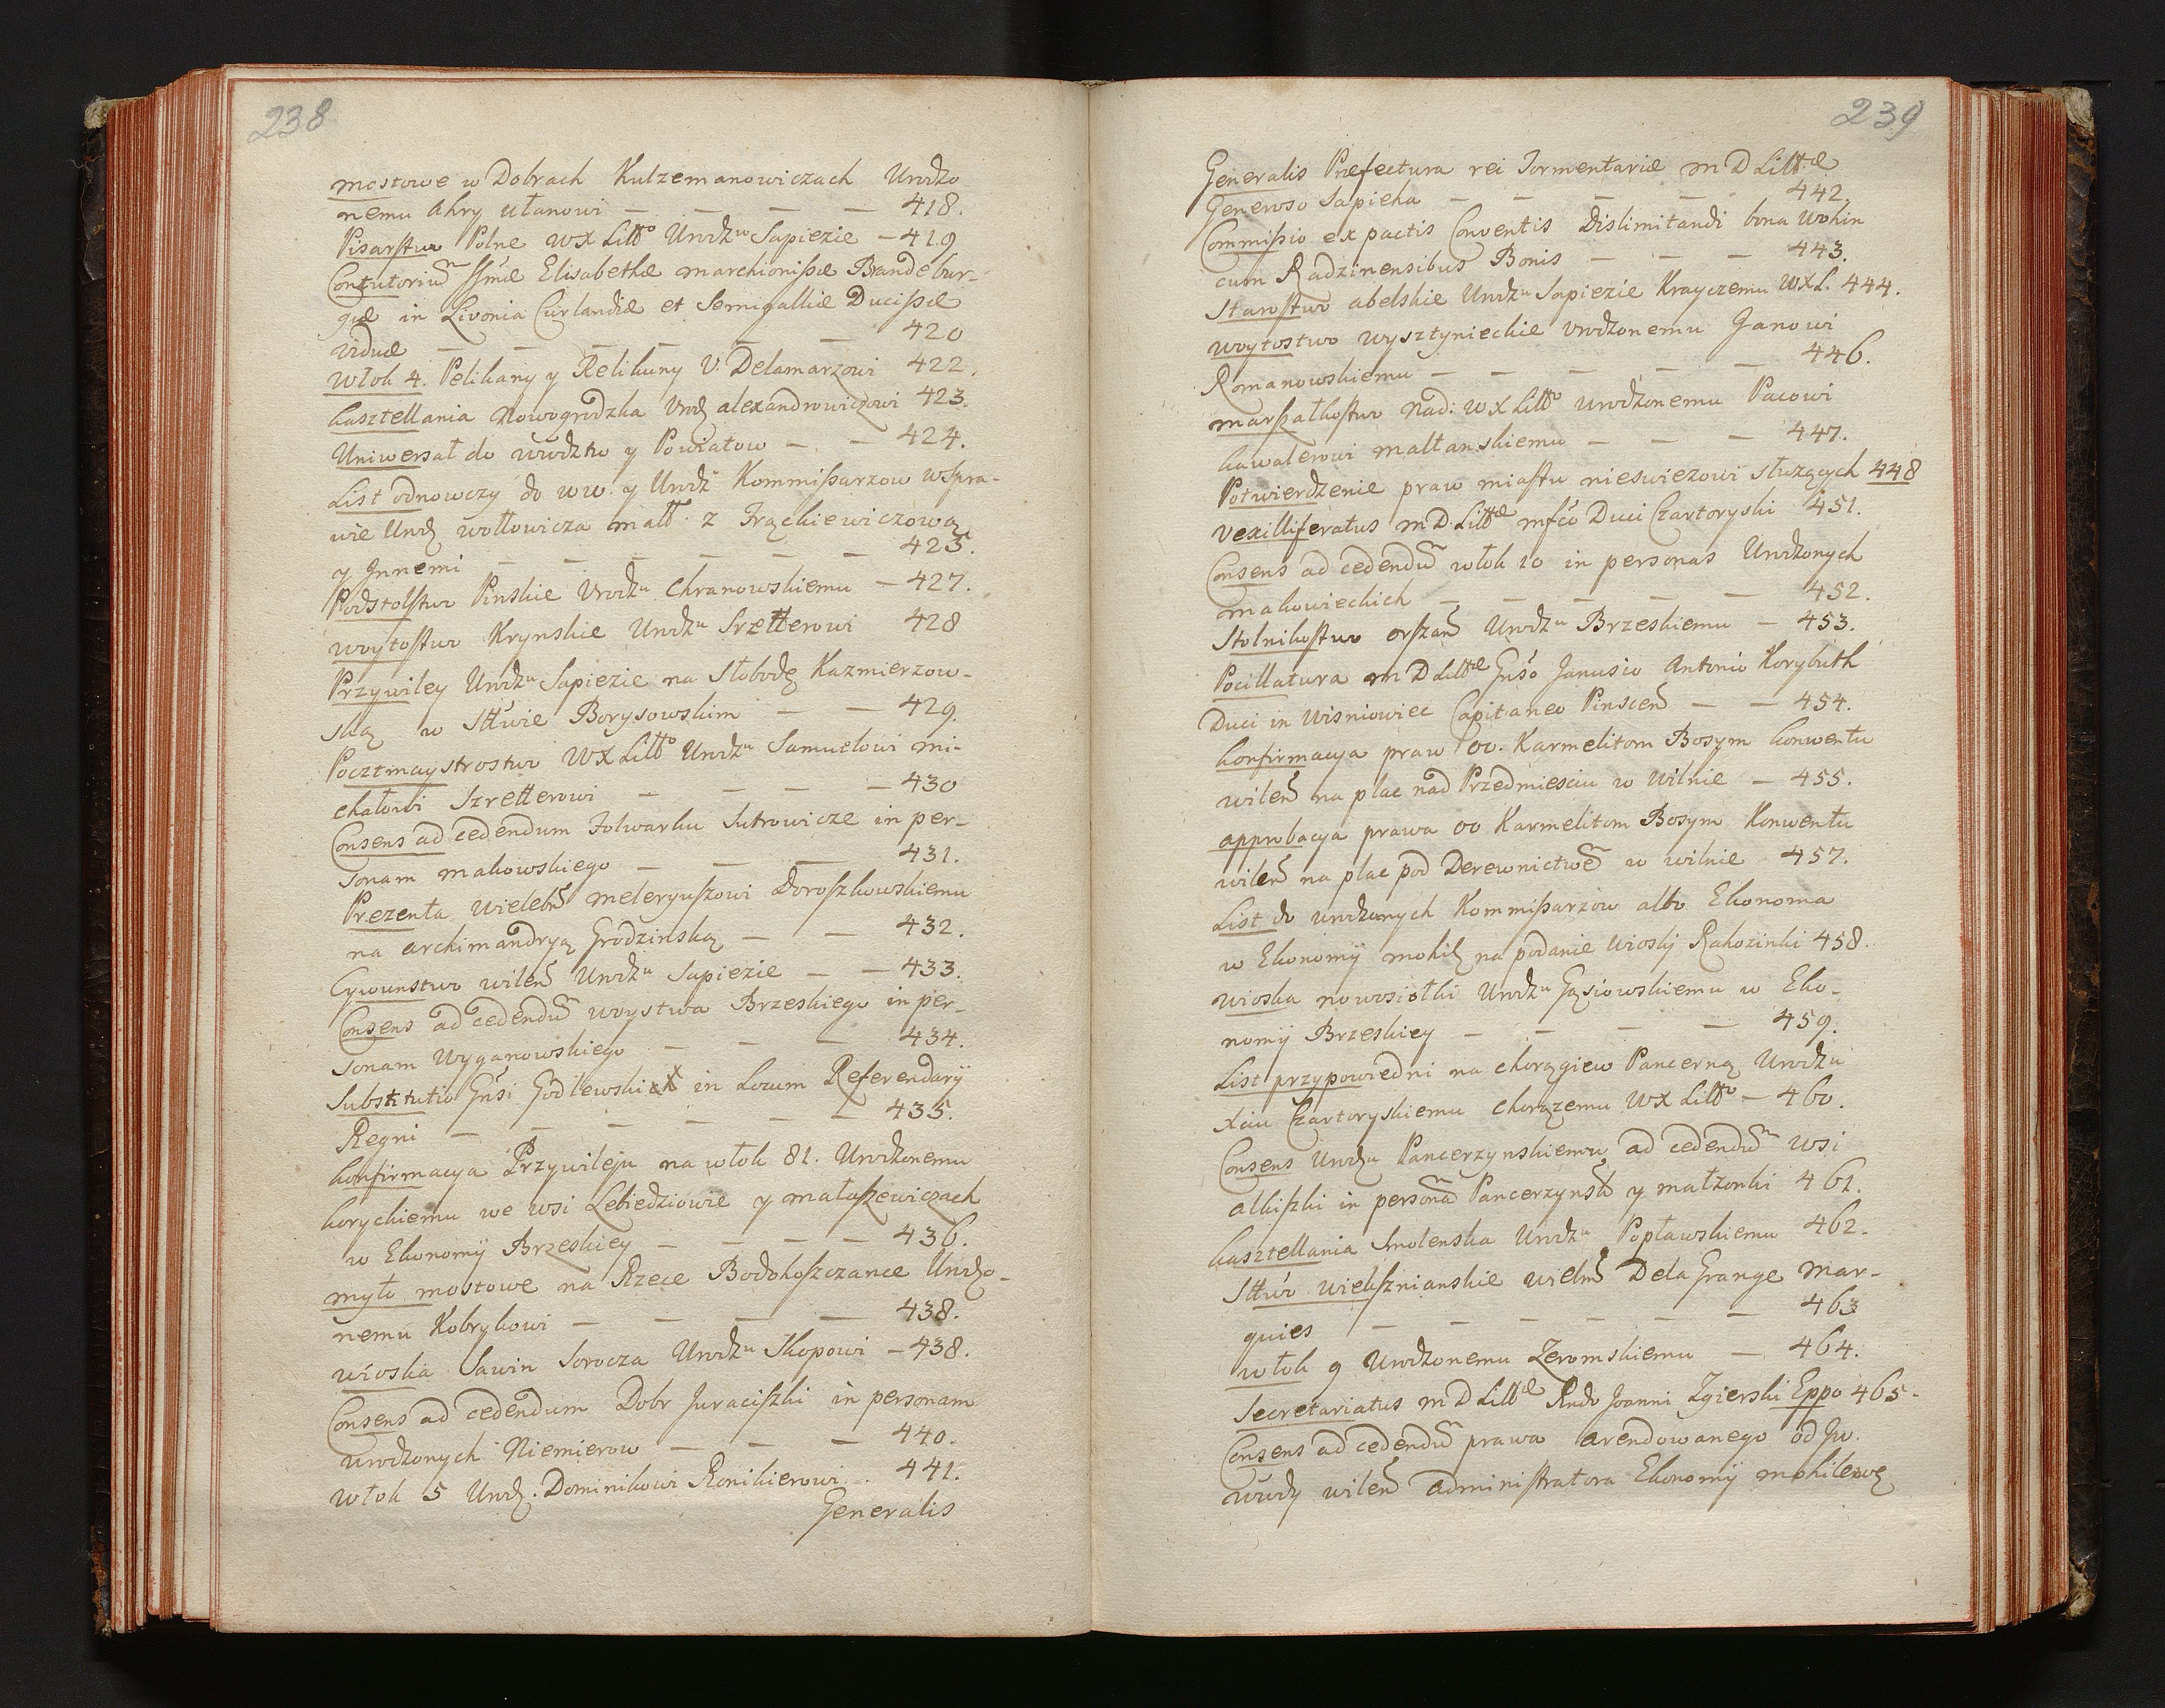 238
mostowe w Dobrach Kulzemanowiczach Urodzo
nemu Ahry ułanowi — — — — 418.
Pisarstwo Polne WX Litto Urodzu Sapiezie — 419
Contutoriu Elisabethæ marchionissæ Brandebur-
gæ in Livonia Curlandiæ et Semigalliæ Ducissæ
viduæ — — — — — — 420
Włok 4. Pelikany y Relikuny U. Delamarzowi 422.
kasztellania Nowogrodzka Urodz alexandrowiczowi 423.
Uniwersał do wwdztw y Powiatow — — 424.
List odnowczy do ww. y Urodz Kommissarzow wspra-
wie Urodz wołłowicza małł. z Frąckiewiczową
y Jnnemi — — — — — — 425.
Podstolstwo Pinskie Urodzu Chranowskiemu — 427.
woytostwo Krynskie Urodzu Szretterowi 428
Przywiley Urodzu Sapiezie na Słobodę Kazmierzow-
ską w Sttwie Borysowskim — — 429.
Pocztmaystrostwo WX Litto Urodzu Samuelowi mi-
chałowi Szretterowi — — — — 430
Consens ad cedendum Folwarku Sutrowicze in per-
sonam makowskiego — — — 431.
Prezenta wieleb meleryuszowi Doroszkowskiemu
na archimandryą Grodzinską — — 432.
Cywunstwo wilen Urodzu Sapiezie — — 433.
Consens ad cedendu woystwa Brzeskiego in per-
sonam Wyganowskiego — — — 434.
Substitutio Gnsi Godlewski in Locum Referendarij
Regni — — — — — — 435.
konfirmacya Przywileju na włok 81. Urodzonemu
korychiemu we wsi Lebiedziowie y małaszewiczach
w Ekonomij Brzeskiey — — — — 436.
myto mostowe na Rzece Bodokoszczance Urodzo-
nemu Kobrykowi — — — — 438.
wioska Sawin Sorocza Urodzu Skopowi — 438.
Consens ad cedendum Dobr Juraciszki in personam
Urodzonych Niemierow — — — 440.
włok 5 Urodz. Dominikowi Ronikierowi . . 441.
Generalis
239
Generalis Præfectura rei Tormentariæ M D Littæ
Generoso Sapieha — — — — — 442.
Commissio ex pactis Conventis Dislimitandi bona Wohin
cum Radzinensibus Bonis — — — 443.
Starostwo abelskie Urodzu Sapiezie Krayczemu WXL. 444.
woytostwo wysztynieckie urodzonemu Janowi
Romanowskiemu — — — — — 446.
marszałkostwo Nad: WX Litto urodzonemu Pacowi
kawalerowi maltanskiemu — — — 447.
Potwierdzenie praw miastu nieswiezowi słuzących 448
Vexilliferatus M D. Littæ mfco Duci Czartoryski 451.
Consens ad cedendu włok 20 in personas Urodzonych
makowieckich — — — — — 452.
Stolnikostwo orszan Urodzu Brzeskiemu — 453.
Pocillatura M D Littæ Gnso Janusio Antonio Korybuth
Duci in Wisniowiec Capitaneo Pinscen — — 454.
konfirmacya praw OO. Karmelitom Bosym konwentu
wilen na plac nad Przedmiesciu w Wilnie — 455.
approbacya prawa OO Karmelitom Bosym Konwentu
wilen na plac pod Derewnictwe w wilnie 457.
List do urodzonych Kommissarzow albo Ekonoma
w Ekonomij mohil na podanie wioskj Rakozinki 458.
wioska nowosiołki Urodzu Gąsiowskiemu w Eko-
nomij Brzeskiey — — — — 459.
List przypowiedni na chorągiew Pancerną Urodzu
Xciu Czartoryskiemu chorązemu WX Litto — 460.
Consens Urodzu Pancerzynskiemu ad cedendu wsi
alkiszki in persona Pancerzynsk y małzonki 461.
kasztellania Smolenska Urodzu Popławskiemu 462.
Sttwo wielisznianskie wielm Dela Grange Mar-
quies — — — — — — 463
włok 9 Urodzonemu Zeromskiemu — 464.
Secretariatus M D Littæ Rndo Joanni Zgierski Eppo 465.
Consens ad cedendu prawa arendowanego od Jw.
wwdy wilen administratora Ekonomij mohilews